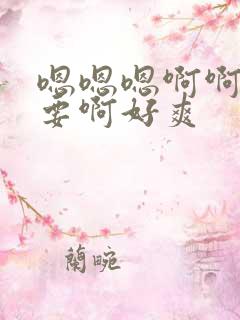 嗯嗯嗯啊啊
要啊好爽
蘭畹